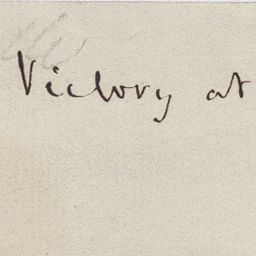 Victory at